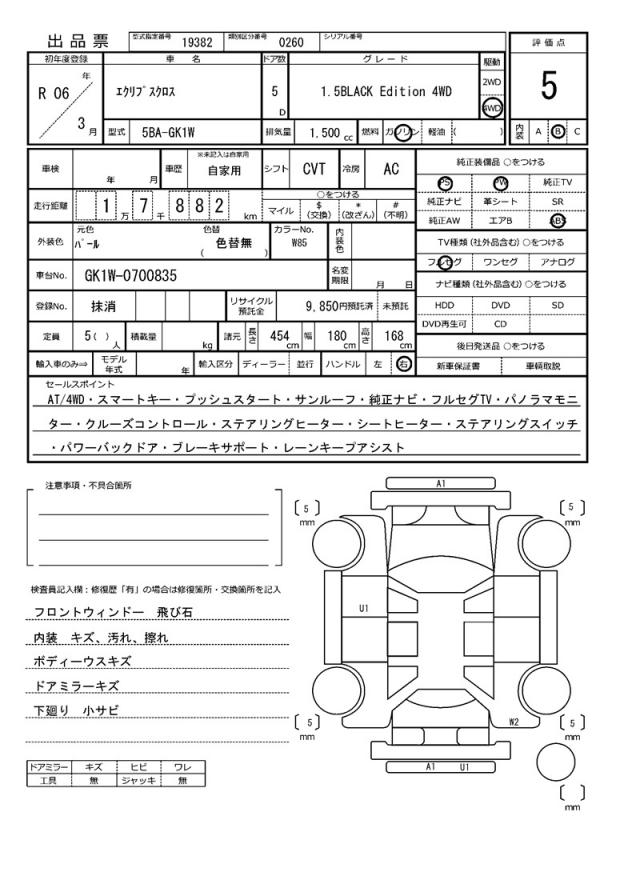 出品票
型式指定番号 19382 類別区分番号 0260 シリアル番号
初年度登録 車 名 ドア数 グレード 駆動 評価点
R 06 年 3 月
エクリプスクロス
5 D
1.5BLACK Edition 4WD
2WD
4WD
5
型式 5BA-GK1W 排気量 1.500 cc 燃料 ガソリン 軽油 ( )
内装 A B C
車検 年 月 車歴 ※未記入は自家用 自家用 シフト CVT 冷房 AC
純正装備品 ○をつける
PS PW 純正TV
純正ナビ 革シート SR
純正AW エアB ABS
走行距離 1 万 7 千 8 8 2 km
○をつける
マイル $ (交換) * (改ざん) # (不明)
外装色 元色 パール 色替 ( 色替無 ) カラーNo. W85 内装色
TV種類 (社外品含む) ○をつける
フルセグ ワンセグ アナログ
車台No. GK1W-0700835 名変期限 月 日
ナビ種類 (社外品含む) ○をつける
HDD DVD SD
DVD再生可 CD
登録No. 抹消 リサイクル預託金 9,850円預託済 未預託
定員 5( ) 人 積載量 kg 諸元 長さ 454 cm 幅 180 cm 高さ 168 cm
後日発送品 ○をつける
新車保証書 車輌取説
輸入車のみ⇒ モデル年式 年 輸入区分 ディーラー 並行 ハンドル 左 右
セールスポイント
AT/4WD・スマートキー・プッシュスタート・サンルーフ・純正ナビ・フルセグTV・パノラマモニ
ター・クルーズコントロール・ステアリングヒーター・シートヒーター・ステアリングスイッチ
・パワーバックドア・ブレーキサポート・レーンキープアシスト
注意事項・不具合箇所
検査員記入欄：修復歴「有」の場合は修復箇所・交換箇所を記入
フロントウィンドー 飛び石
内装 キズ、汚れ、擦れ
ボディーウスキズ
ドアミラーキズ
下廻り 小サビ
ドアミラー キズ ヒビ ワレ
工具 無 ジャッキ 無
A1
5 mm
5 mm
U1
W2
5 mm
5 mm
A1 U1
mm